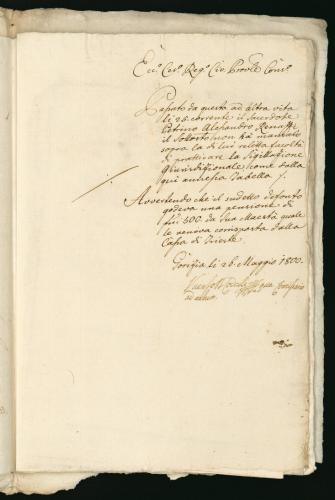 Ecc. Ces. Reg. Cir. Provle Cons.
Passato da questa ad altra vita
li 25 corrente il Sacerdote
Alesandro
il non ha mancato
sopra la di lui relitta facoltà
di pratticare la Sigillazione
Giurisdizionale come dalla
qui annessa Tabella /.
Avvertendo che il sudetto defonto
godeva una pensione di
500 da Sua Maestà quale
le veniva corrisposta dalla
Cassa di Trieste.
Gorizia li 26 Maggio 1800.